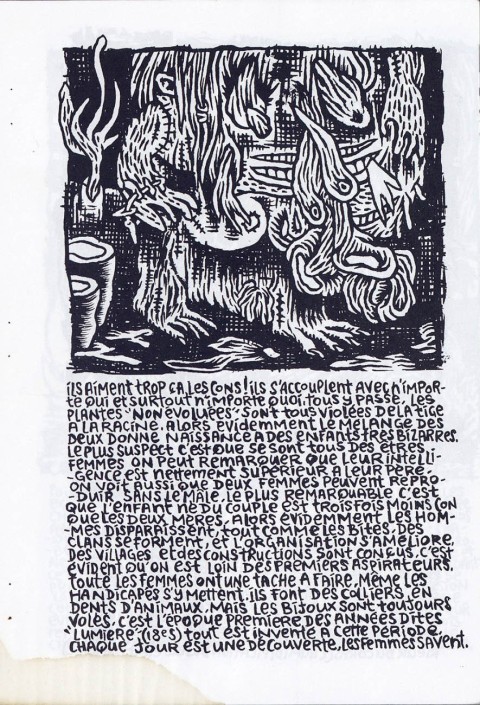 ils AiMENT TROP ÇA, LES CONS! ils S'ACCOUPLENT AVEC N'IMPOR-
TE QUI ET SURTOUT N'IMPORTE QUOI, TOUS Y PASSE. LES
PLANTES "NON EVOLUÉES" SONT TOUS VIOLÉES DE LA TIGE
A LA RACINE. ALORS EVIDEMMENT LE MELANGE DES
DEUX DONNE NAISSANCE A DES ENFANTS TRES BIZARRES.
LE PLUS SUSPECT C'EST QUE SE SONT TOUS DES ÊTRES
FEMMES ON PEUT REMARQUER QUE LEUR INTELLI-
GENCE EST NETTEMENT SUPERIEUR A LEUR PERE.
ON VOIT AUSSI QUE DEUX FEMMES PEUVENT REPRO-
DUIR, SANS LE MÂLE. LE PLUS REMARQUABLE C'EST
QUE L'ENFANT NE DU COUPLE EST TROIS FOIS MOINS CON
QUE LES DEUX MERES. ALORS EVIDEMMENT LES HOM-
-MES DISPARAISSENT, TOUT COMME LES BITES. DES
CLANS SE FORMENT, ET L'ORGANISATION S'AMELIORE,
DES VILLAGES ET DES CONSTRUCTIONS SONT CONÇUS. C'EST
EVIDENT QU'ON EST LOIN DES PREMIERS ASPIRATEURS.
TOUTE LES FEMMES ONT UNE TACHE A FAIRE, MÊME LES
HANDICAPÉS S'Y METTENT. ILS FONT DES COLLIERS, EN
DENTS D'ANIMAUX. MAIS LES BIJOUX SONT TOUJOURS
VOLÉS. C'EST L'ÉPOQUE PREMIERE DES ANNÉES DITES
"LUMIERE" (18eS) TOUT EST INVENTÉ A CETTE PÉRIODE,
CHAQUE JOUR EST UNE DÉCOUVERTE, LES FEMMES SAVENT.